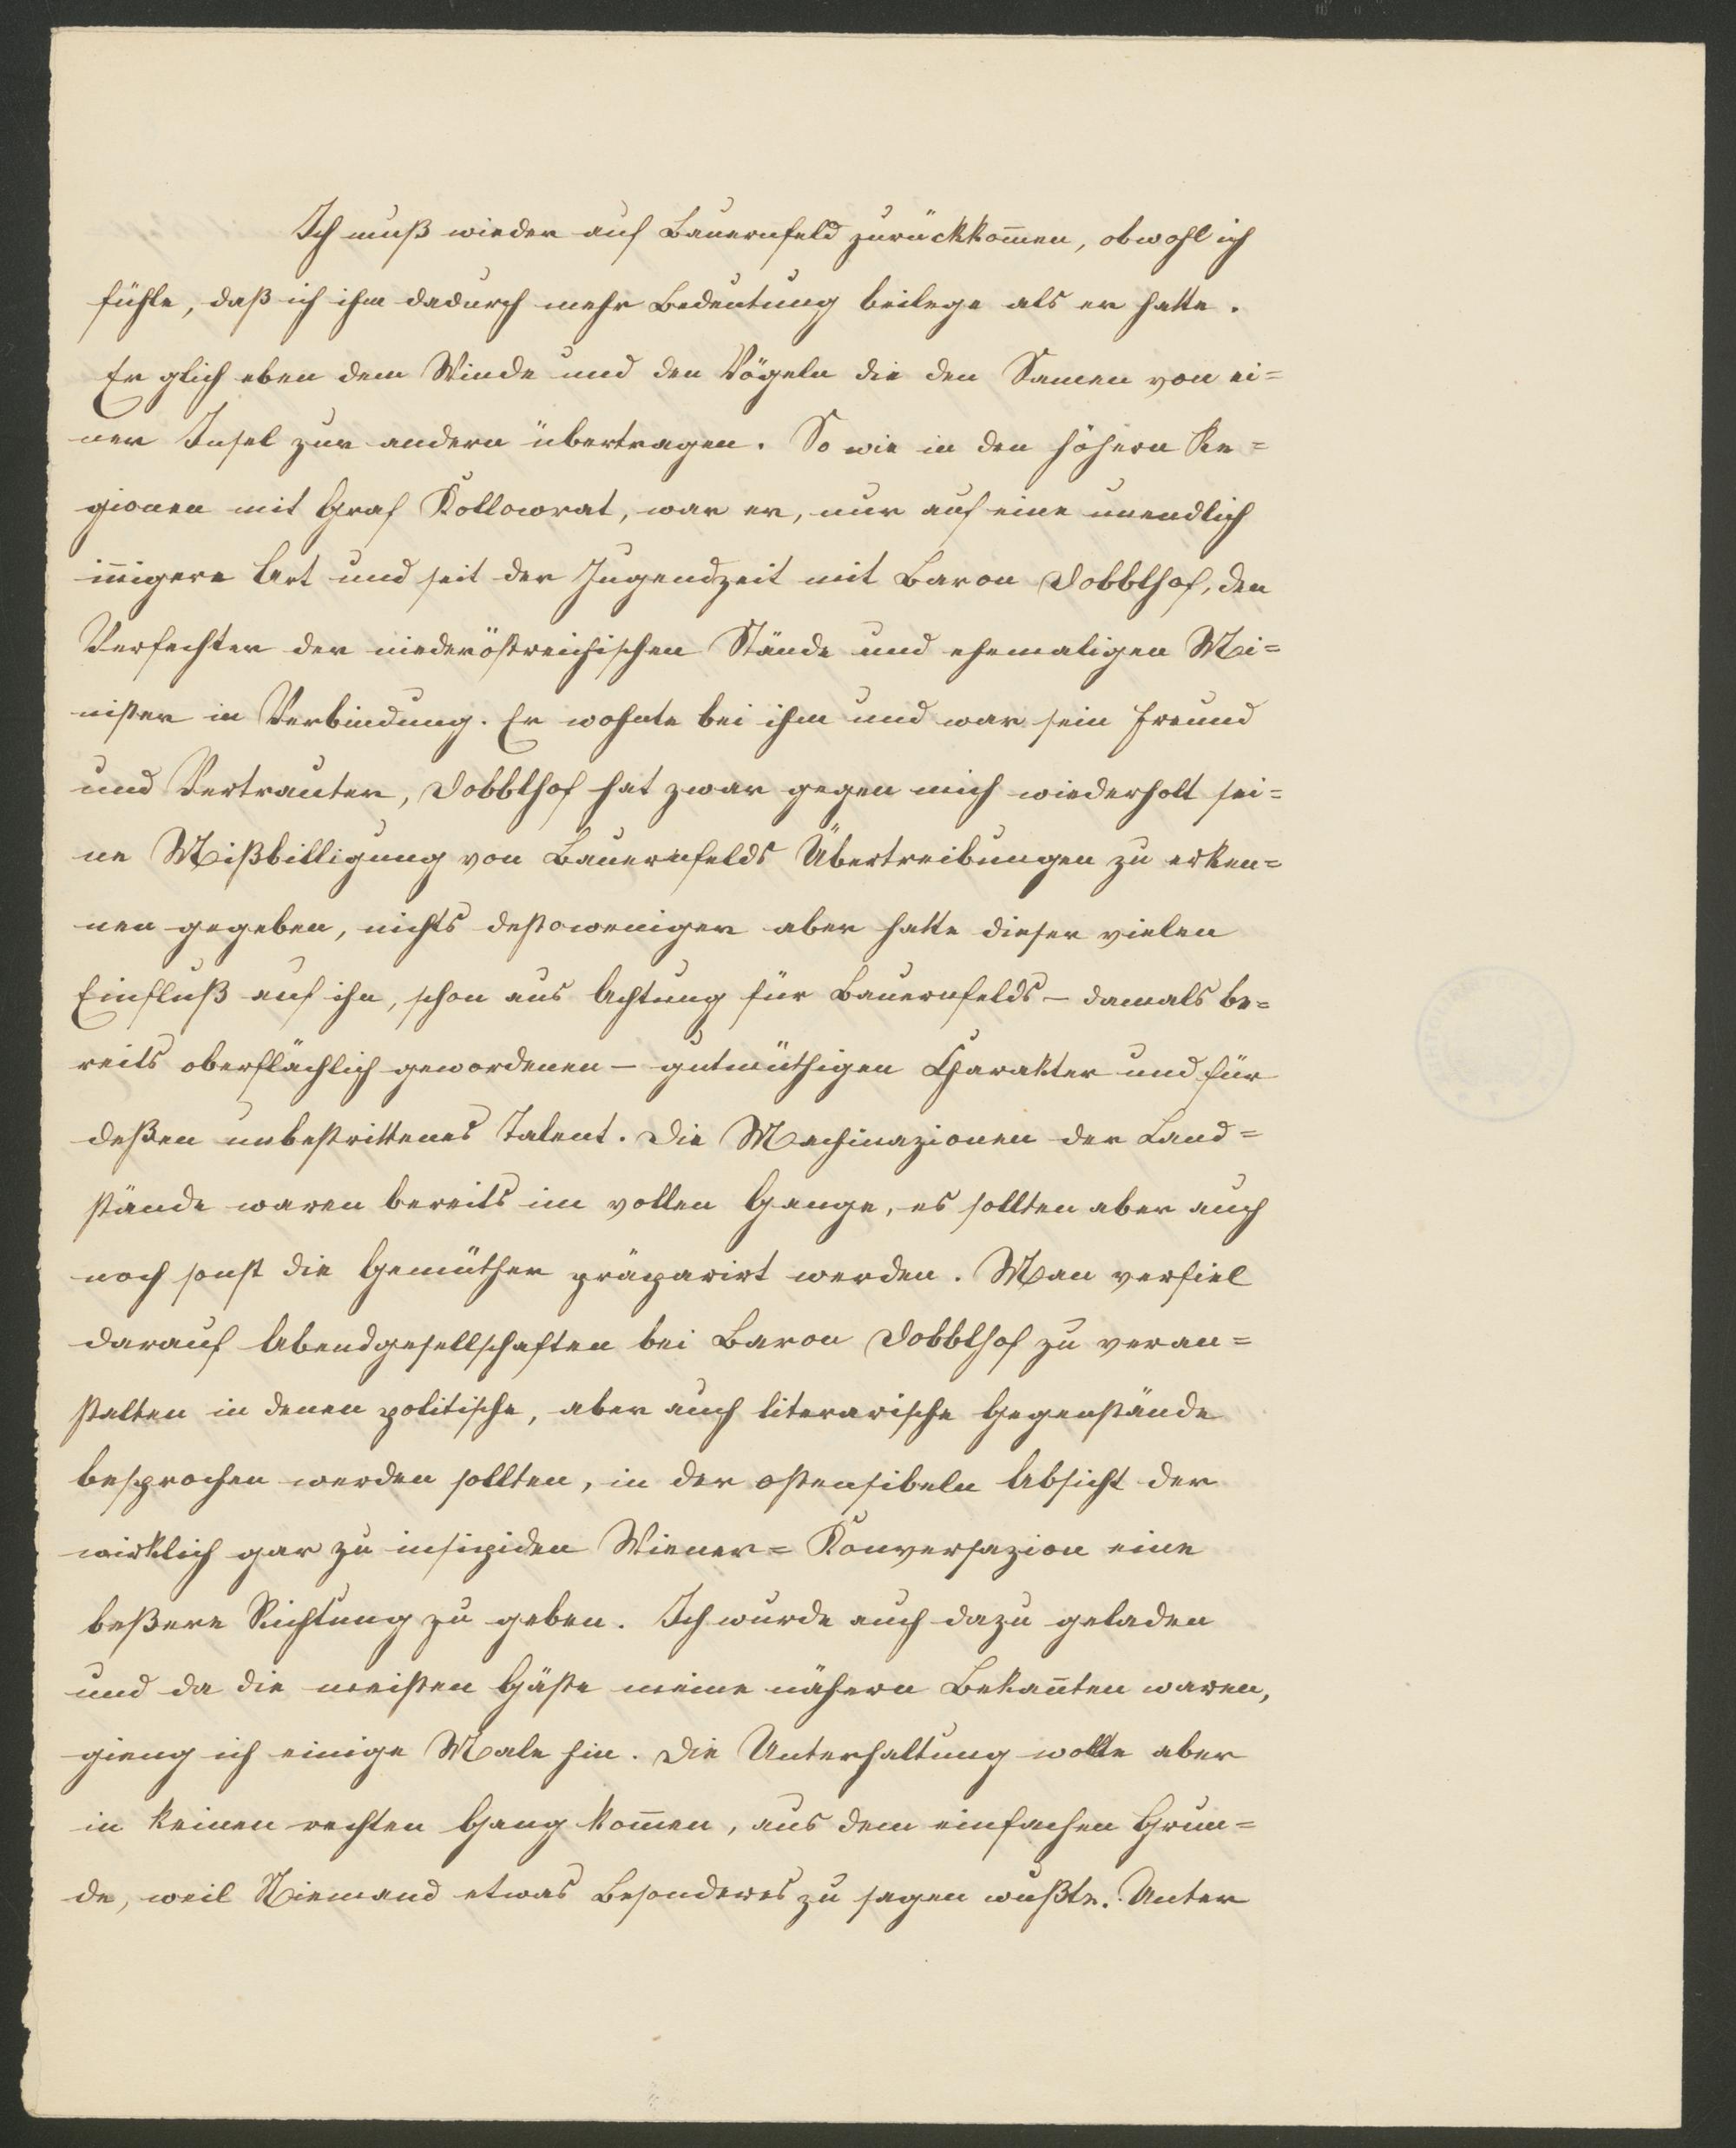 Ich muß wieder auf Bauernfeld zurückkom̄en, obwohl ich
fühle, daß ich ihm dadurch mehr Bedeutung beilege als er hatte.
Er glich eben dem Winde und den Vögeln die den Samen von ei=
ner Insel zur andern übertragen. So wie in den höhern Re=
gionen mit Graf Kollowrat, war er, nur auf eine unendlich
in̄igere Art und seit der Jugendzeit mit Baron Dobblhof, den
Verfechter der niederöstreichischen Stände und ehemaligen Mi=
nister in Verbindung. Er wohnte bei ihm und war sein Freund
und Vertrauter, Dobblhof hat zwar gegen mich wiederholt sei=
ne Mißbilligung von Bauernfelds Übertreibungen zu erken=
nen gegeben, nichts destoweniger aber hatte dieser vielen
Einfluß auf ihn, schon aus Achtung für Bauernfelds – damals be=
reits oberflächlich gewordenen – gutmüthigen Charakter und für
deßen unbestrittenes Talent. Die Machinazionen der Land=
stände waren bereits im vollen Gange, es sollten aber auch
noch sonst die Gemüther präparirt werden. Man verfiel
darauf Abendgesellschaften bei Baron Dobblhof zu veran=
stalten in denen politische, aber auch literarische Gegenstände
besprochen werden sollten, in der ostensibeln Absicht der
wirklich gar zu insipiden Wiener= Konversazion eine
beßere Richtung zu geben. Ich wurde auch dazu geladen
und da die meisten Gäste meine nähern Bekan̄ten waren,
gieng ich einige Male hin. Die Unterhaltung wollte aber
in keinen rechten Gang kom̄en, aus dem einfachen Grun=
de, weil Niemand etwas Besonderes zu sagen wußte. Unter